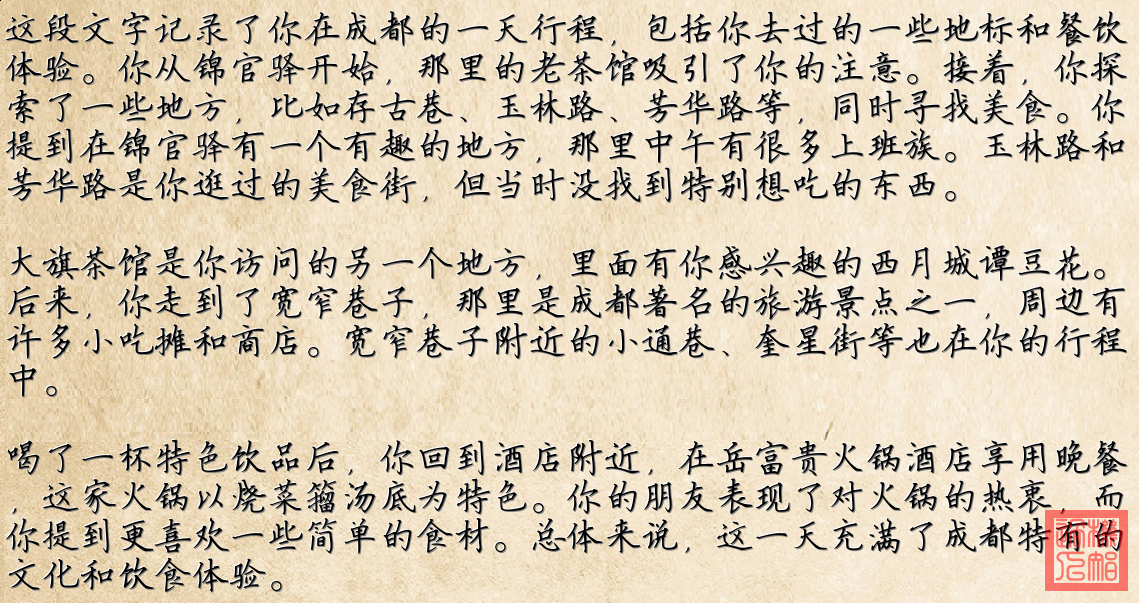 这段文字记录了你在成都的一天行程，包括你去过的一些地标和餐饮
体验。你从锦官驿开始，那里的老茶馆吸引了你的注意。接着，你探
索了一些地方，比如存古巷、玉林路、芳华路等，同时寻找美食。你
提到在锦官驿有一个有趣的地方，那里中午有很多上班族。玉林路和
芳华路是你逛过的美食街，但当时没找到特别想吃的东西。
大旗茶馆是你访问的另一个地方，里面有你感兴趣的西月城谭豆花。
后来，你走到了宽窄巷子，那里是成都著名的旅游景点之一，周边有
许多小吃摊和商店。宽窄巷子附近的小通巷、奎星街等也在你的行程
中。
喝了一杯特色饮品后，你回到酒店附近，在岳富贵火锅酒店享用晚餐
，这家火锅以烧菜籀汤底为特色。你的朋友表现了对火锅的热衷，而
你提到更喜欢一些简单的食材。总体来说，这一天充满了成都特有的
文化和饮食体验。